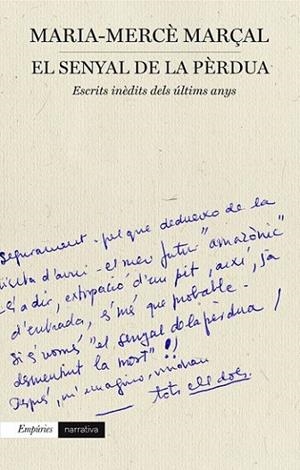 MARIA-MERCÈ MARÇAL
EL SENYAL DE LA PÈRDUA
Escrits inèdits dels últims anys
Segurament - pel que dedueixo de la
visita d'avui - el meu futur "amazònic"
- és a dir, extirpació d'un pit, així, ja
d'entrada, s'més que probable.
Si és només "el senyal de la pèrdua /
desmentint la mort"!!
Després, m'imagino, vindran
tots els dols.
Empúries narrativa